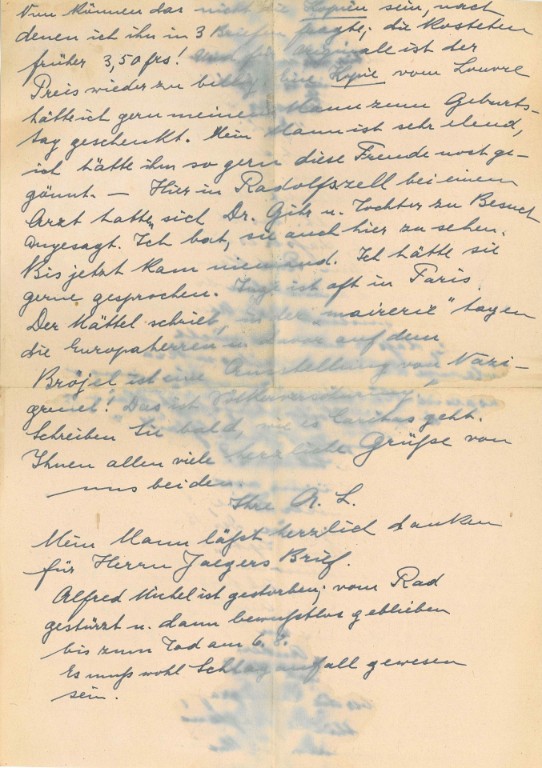 Nun können das nicht die Kopien sein, nach
denen ich ihn in 3 Briefen fragte; die kosteten
früher 3,50 frs! Und für Originale ist der
Preis wieder zu billig. Eine Kopie vom Louvre
hätte ich gern meinem Mann zum Geburts-
tag geschenkt. Mein Mann ist sehr elend,
ich hätte ihm so gern diese Freude noch ge-
gönnt. — Hier in Radolfszell bei einem
Arzt hatte sich Dr. u. Tochter zu Besuch
angesagt. Ich bat, sie auch hier zu sehen.
Bis jetzt kam niemand. Ich hätte sie
gerne gesprochen. Inge ist oft in Paris.
Der schrieb, in der "mairerie" tagen
die Europaherren u. davor auf dem
ist eine Ausstellung von Nazi-
greuel! Das ist
Schreiben Sie bald, wie es geht.
Ihnen allen viele herzliche Grüße von
uns beiden.
Ihre A. L.
Mein Mann läßt herzlich danken
für Herrn Jaegers Brief.
Alfred ist gestorben; vom Rad
gestürzt u. dann bewußtlos geblieben
bis zum Tod am 6.
Es muß wohl Schlaganfall gewesen
sein.